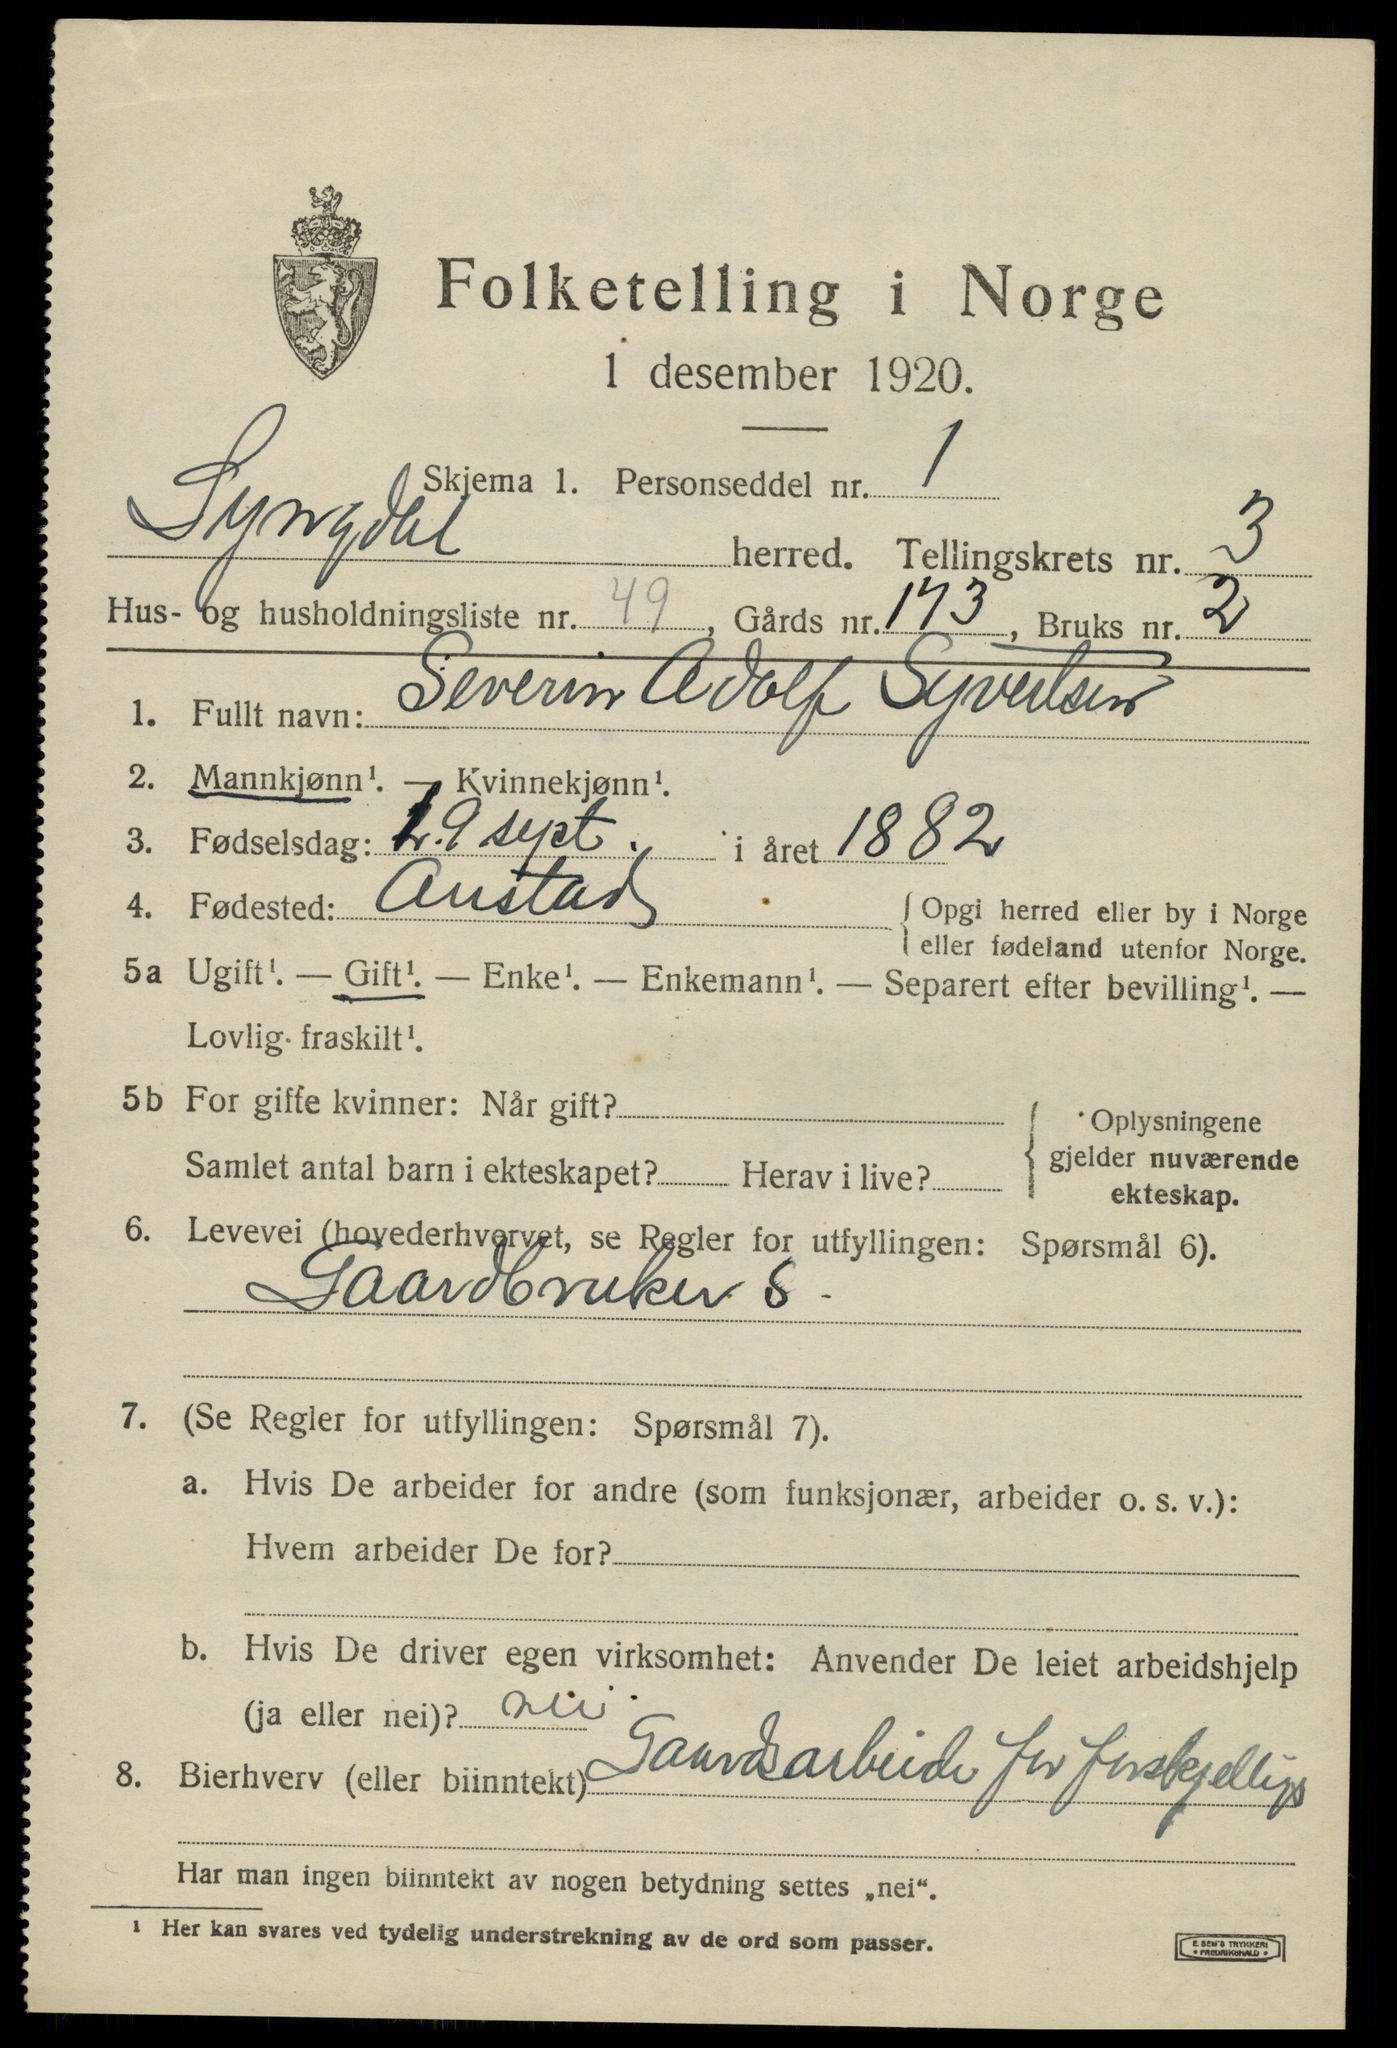 Folketelling i Norge
1 desember 1920.
Skjema 1. Personseddel nr. 1
Lyngdal herred. Tellingskrets nr. 3
Hus- og husholdningsliste nr. 49, Gårds nr. 173, Bruks nr. 2
1. Fullt navn: Severin Adolf Syvertsen
2. Mannkjønn¹. — Kvinnekjønn¹.
3. Fødselsdag: 19 sept. i året 1882
4. Fødested: Austad { Opgi herred eller by i Norge
eller fødeland utenfor Norge.
5a Ugift¹. — Gift¹. — Enke¹. — Enkemann¹. — Separert efter bevilling¹. —
Lovlig fraskilt¹.
5b For gifte kvinner: Når gift?
Samlet antal barn i ekteskapet? Herav i live?
{ Oplysningene
gjelder nuværende
ekteskap.
6. Levevei (hovederhvervet, se Regler for utfyllingen: Spørsmål 6).
Gaardbruker S
7. (Se Regler for utfyllingen: Spørsmål 7).
a. Hvis De arbeider for andre (som funksjonær, arbeider o. s. v.):
Hvem arbeider De for?
b. Hvis De driver egen virksomhet: Anvender De leiet arbeidshjelp
(ja eller nei)? nei
8. Bierhverv (eller biinntekt) Gaardsarbeide for forskjellige
Har man ingen biinntekt av nogen betydning settes „nei“.
¹ Her kan svares ved tydelig understrekning av de ord som passer.
E. SEM'S TRYKKERI
• FREDRIKSHALD •